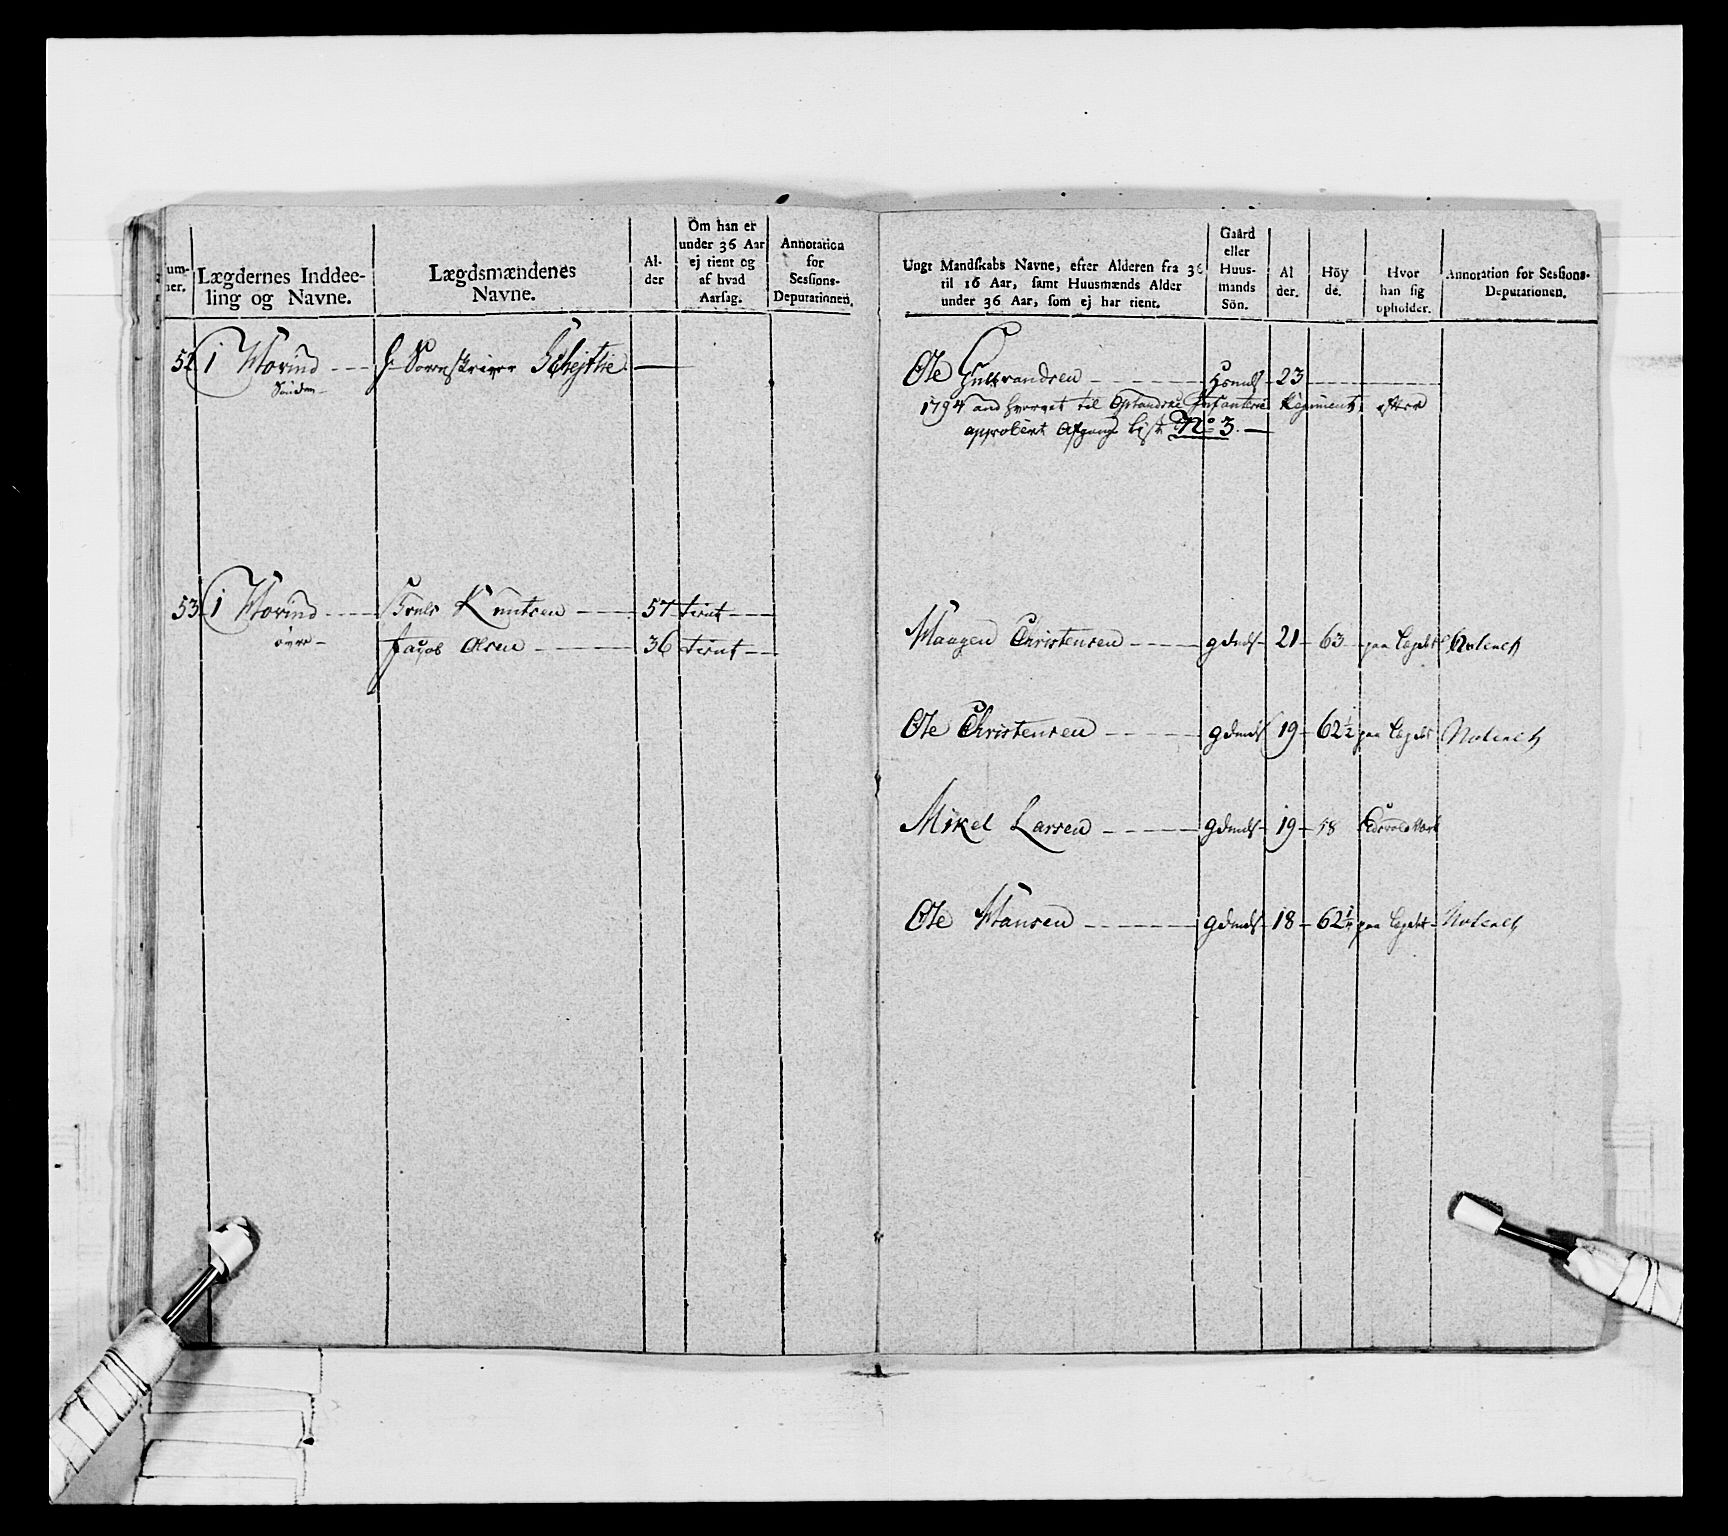 um-
ner.
Lægdernes Inddee-
ling og Navne.
Lægdsmændenes
Navne.
Al-
der
Om han er
under 36 Aar
ej tient og
af hvad
Aarsag.
Annotation
for
Sessions-
Deputationen.
52 1 Morind
Sönden
Hr Sorenskriver
53 1 Morind Truls Knutsen 57 tient
övre Jacob Olsen 36 tient
Ungt Mandskabs Navne, efter Alderen fra 36
til 16 Aar, samt Huusmænds Alder
under 36 Aar, som ej har tient.
Gaard
eller
Huus-
mands
Sön.
Al
der.
Höy
de.
Hvor
han sig
opholder.
Annotation for Sessions-
Deputationen.
Ole Gulbrandsen Hsmds 23
1794 til Oplandske Infanterie Regiment efter
approbert Afgangs List No 3.
Maagen Christensen gdmds 21 63 paa Lægdet
Ole Christensen gdmds 19 62½ paa Lægdet
Mikel Larsen gdmds 19 58 Eidsvold Værk
Ole Hansen gdmds 18 62½ paa Lægdet